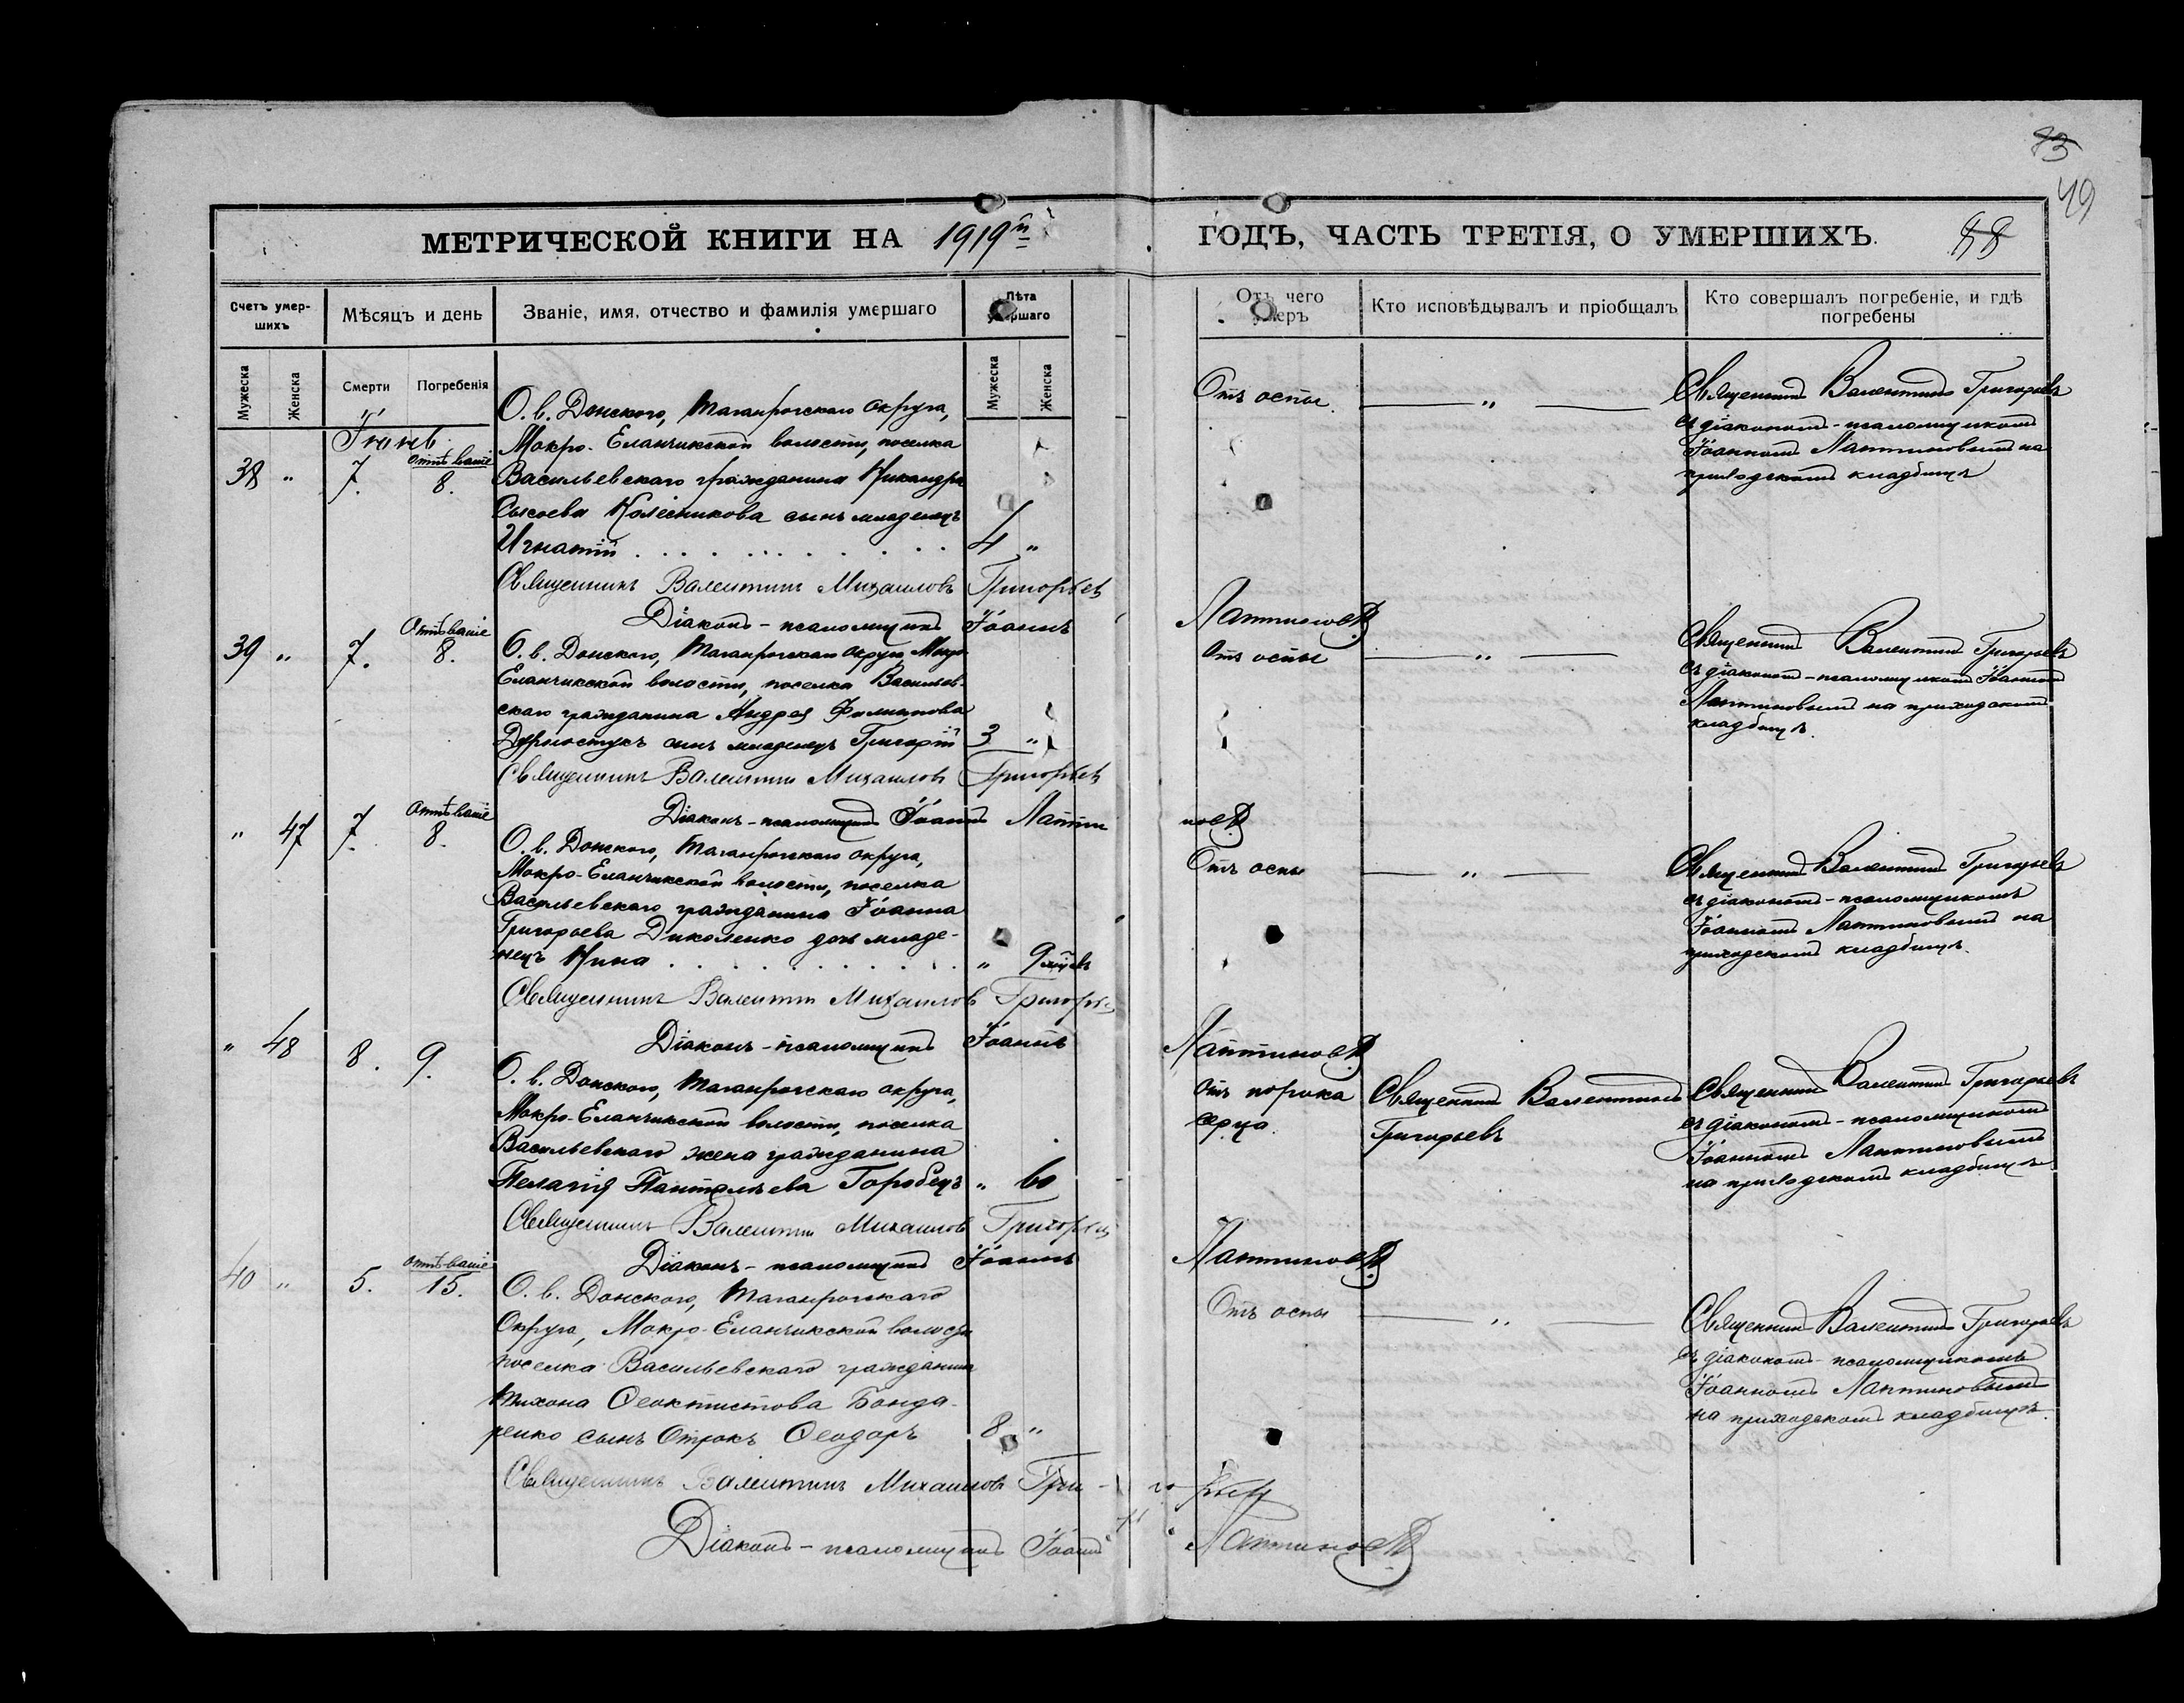 83
49
МЕТРИЧЕСКОЙ КНИГИ НА 1919й
ГОДЪ, ЧАСТЬ ТРЕТІЯ, О УМЕРШИХЪ.
Счетъ умер-
шихъ
Мѣсяцъ и день
Званіе, имя, отчество и фамилія умершаго
Лѣта
умершаго
Отъ чего
умеръ
Кто исповѣдывалъ и пріобщалъ
Кто совершалъ погребеніе, и гдѣ
погребены
Мужеска
Женска
Смерти
Погребенія
Мужеска
Женска
38 "
7.
отпѣваніе
8.
О. в. Донского, Таганрогскаго округа,
Мокро-Еланчикской волости, поселка
Васильевскаго гражданина Никандра
Сысоева Колесникова сынъ младенецъ
Игнатій . . . . . . . . . . 4 "
Отъ оспы.
"
Священникъ Валентинъ Григорьевъ
съ діакономъ-псаломщикомъ
Іоанномъ Лаптиновымъ на
приходскомъ кладбищѣ
Священникъ Валентинъ Михаиловъ Григорьевъ
Діаконъ-псаломщикъ Іоаннъ Лаптиновъ
39 "
7.
Отпѣваніе
8.
О. в. Донского, Таганрогскаго округа Мокро-
Еланчикской волости, поселка Васильев-
скаго гражданина Андрея Филиппова
сынъ младенецъ Григорій 3 "
Отъ оспы
"
Священникъ Валентинъ Григорьевъ
съ діакономъ-псаломщикомъ Іоанномъ
Лаптиновымъ на приходскомъ
кладбищѣ.
Священникъ Валентинъ Михаиловъ Григорьевъ
Діаконъ-псаломщикъ Іоаннъ Лаптиновъ
" 47
7.
отпѣваніе
8.
О. в. Донского, Таганрогскаго округа,
Мокро-Еланчикской волости, поселка
Васильевскаго гражданина Іоанна
Григорьева Диколенко дочь младе-
нецъ Нина . . . . . . . . . . " 9 мѣсяцевъ
Отъ оспы
"
Священникъ Валентинъ Григорьевъ
съ діакономъ-псаломщикомъ
Іоанномъ Лаптиновымъ на
приходскомъ кладбищѣ.
Священникъ Валентинъ Михаиловъ Григорьевъ
Діаконъ-псаломщикъ Іоаннъ Лаптиновъ
" 48
8.
9.
О. в. Донского, Таганрогскаго округа,
Мокро-Еланчикской волости, поселка
Васильевскаго жена гражданина
Пелагія Пантелѣева Горобецъ " 60
отъ порока
серца
Священникъ Валентинъ
Григорьевъ
Священникъ Валентинъ Григорьевъ
съ діакономъ-псаломщикомъ
Іоанномъ Лаптиновымъ
на приходскомъ кладбищѣ
Священникъ Валентинъ Михаиловъ Григорьевъ
Діаконъ-псаломщикъ Іоаннъ Лаптиновъ
40 "
5.
отпѣваніе
15.
О. в. Донского, Таганрогскаго
Округа, Мокро-Еланчикской волости
поселка Васильевскаго гражданина
Тихона Ѳеоктистова Бонда-
ренко сынъ Отрокъ Ѳеодоръ 8 "
Отъ оспы
"
Священникъ Валентинъ Григорьевъ
съ діакономъ-псаломщикомъ
Іоанномъ Лаптиновымъ
на приходскомъ кладбищѣ.
Священникъ Валентинъ Михаиловъ Григорьевъ
Діаконъ-псаломщикъ Іоаннъ Лаптиновъ